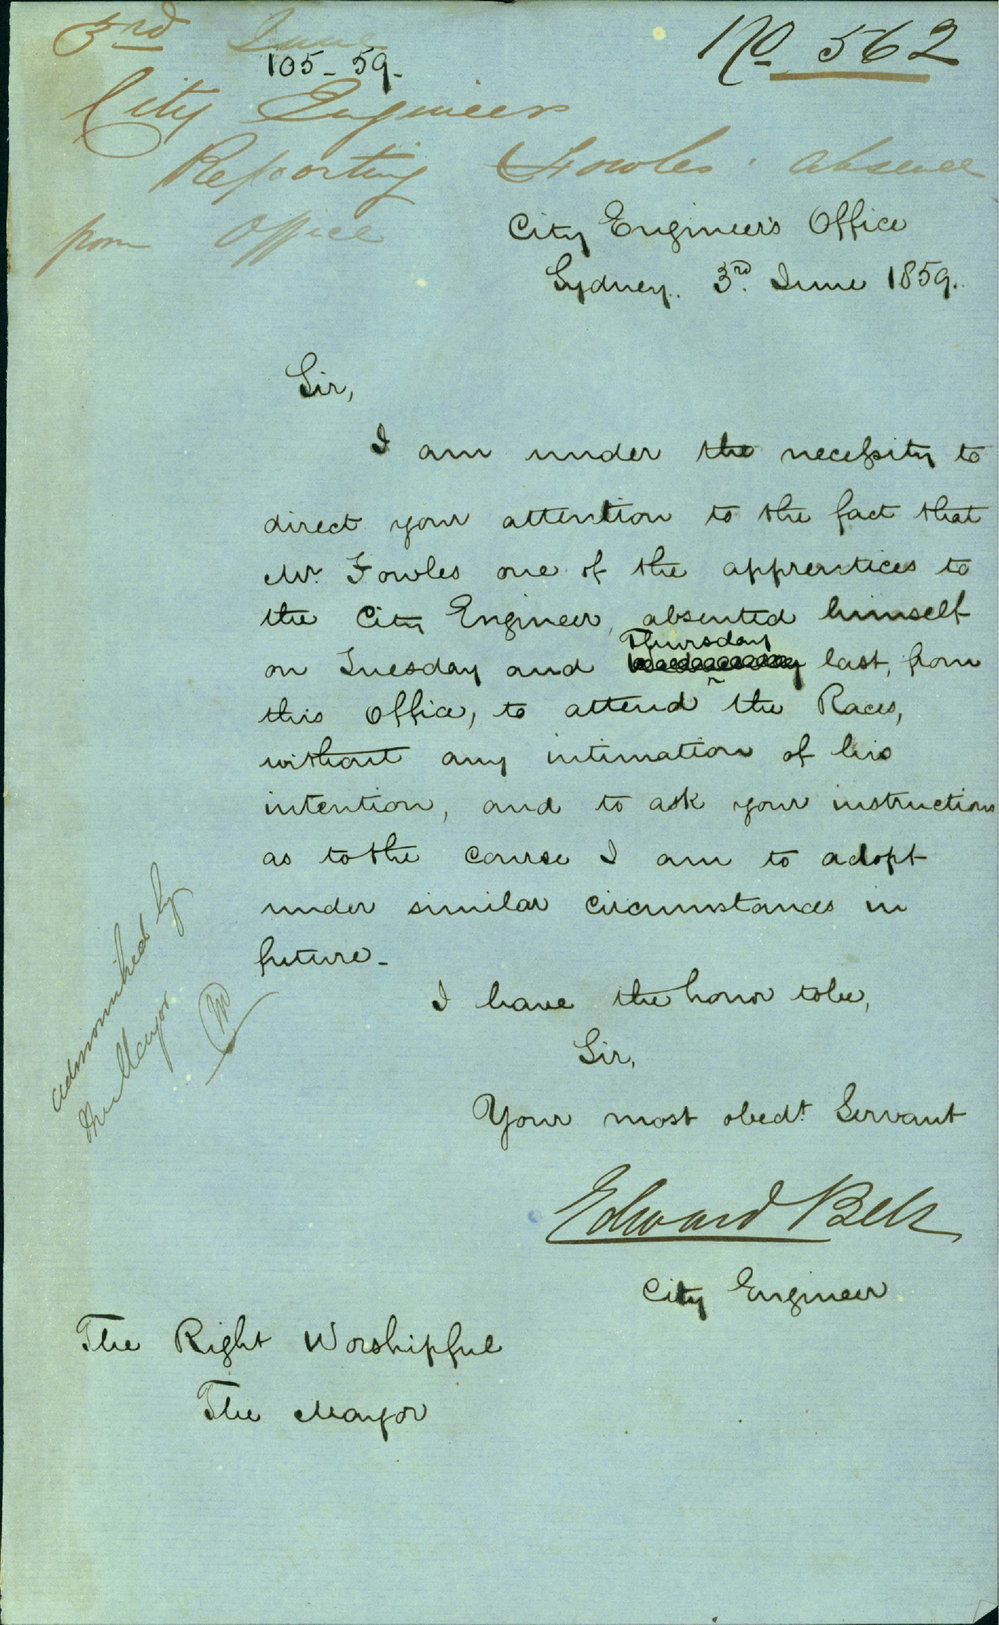 3rd June
105-59-
No 562
City Engineer
Reporting Fowles' absence
from Office
City Engineer's Office
Sydney. 3rd. June 1859.
Sir,
I am under the necessity to
direct your attention to the fact that
Mr. Fowles one of the apprentices to
the City Engineer, absented himself
Thursday
on Tuesday and Wednesday last, from
this Office, to attend the Races,
without any intimation of his
intention, and to ask your instructions
as to the course I am to adopt
under similar circumstances in
future-
I have the honor to be,
Sir,
Your most obedt. Servant
Edward Bell
City Engineer
The Right Worshipful
The Mayor
admonished by
the Mayor